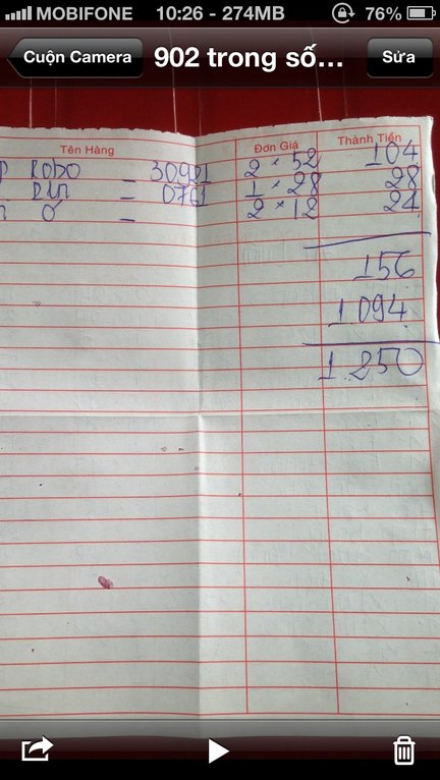 MOBIFONE 10:26 - 274MB 76%
Cuộn Camera 902 trong số... Sửa
Tên Hàng Đơn Giá Thành Tiền
Robo = 30921 2 × 52 104
= 1 × 28 28
ơ = 2 × 12 24
156
1.094
1.250